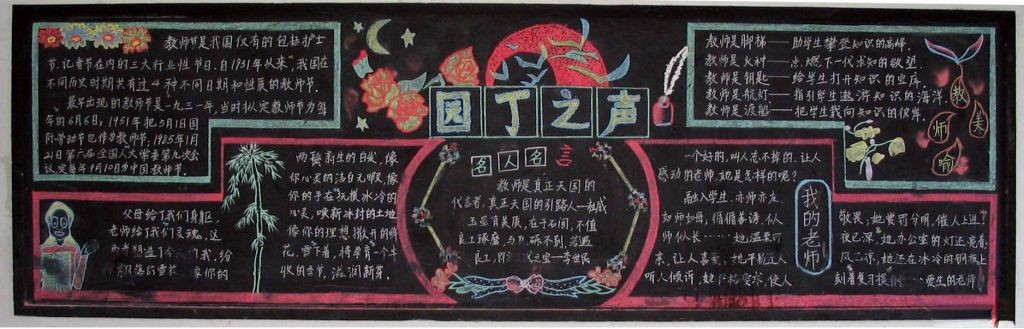 教师节是我国仅有的包括护士
节、记者节在内的三大行业性节日。自1931年以来，我国在
不同历史时期共有过4种不同日期和性质的教师节。
最早出现的教师节是一九三一年，当时拟定教师节为每
年的6月6日；1951年把5月1日国
际劳动节也作为教师节。1985年1月
21日第六届全国人大常委第九次会
议定每年9月10日为中国教师节。
园丁之声
教师是脚梯——助学生攀登知识的高峰。
教师是火种——点燃下一代求知的欲望。
教师是钥匙——给学生打开知识的宝库。
教师是航灯——指引学生遨游知识的海洋。
教师是渡船——把学生载向知识的彼岸。
教
师
美
喻
父母给了我们身躯，
老师给了我们灵魂，这
我，给
像你的
两鬓新生的白发，像
你心灵的洁白无暇，像
你的手在抚摸冰冷的
心灵，唤新冰封的土地
像你的理想撒开的鲜
花。雪下着，将孕育一个丰
收的季节，滋润新芽。
名人名言
教师是真正天国的
代言者，真正天国的引路人
玉虽有美质，在于石间，不值
良工琢磨，与瓦砾不别，若遇
良工，即为 之宝—李世民
我的老师
一个好的，叫人忘不掉的，让人
感动的老师，她是怎样的呢？
融入学生，亦师亦友，
如师如母，循循善诱，似人
师似人长……她温柔可
亲，让人喜爱，她平易近人
听人倾诉，她 格要求，使人
敬畏，她赏罚分明，催人上进，
夜已深，她办公室的灯还亮着，
风已凉，她还在冰冷的钢板上
刻着复习提纲……爱生的老师